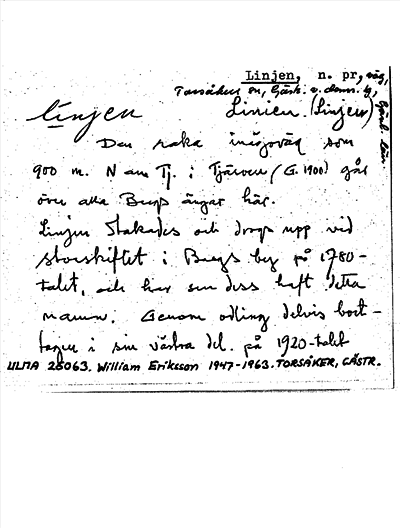 Linjen, n. pr, väg,
Torsåkers sn, Gästr. o. doms. tg,
Gävl. län.
línjen Linien. (Linjen)
Den raka inägoväg som
900 m. N om Tj. i Tjärven (G. 1900) går
över alla Bergs ängar här.
Linjen stakades och drogs upp vid
storskiftet i Bergs by på 1780-
talet, och har sen dess haft detta
namn. Genom odling delvis bort-
tagen i sin västra del. på 1920-talet
ULMA 25063. William Eriksson 1947-1963. TORSÅKER, GÄSTR.